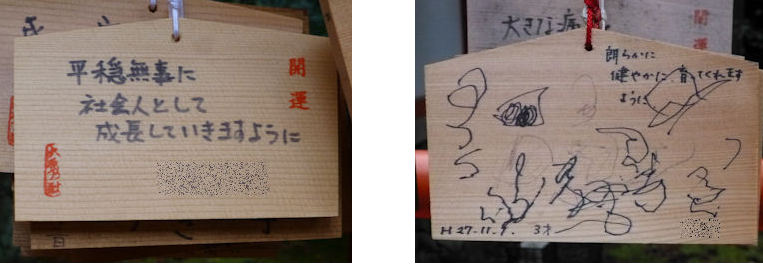 平穏無事に
社会人として
成長していきますように
開運
大きな病
開運
朗らかに
健やかに育ってくれます
ように
H27.11.9. 3才